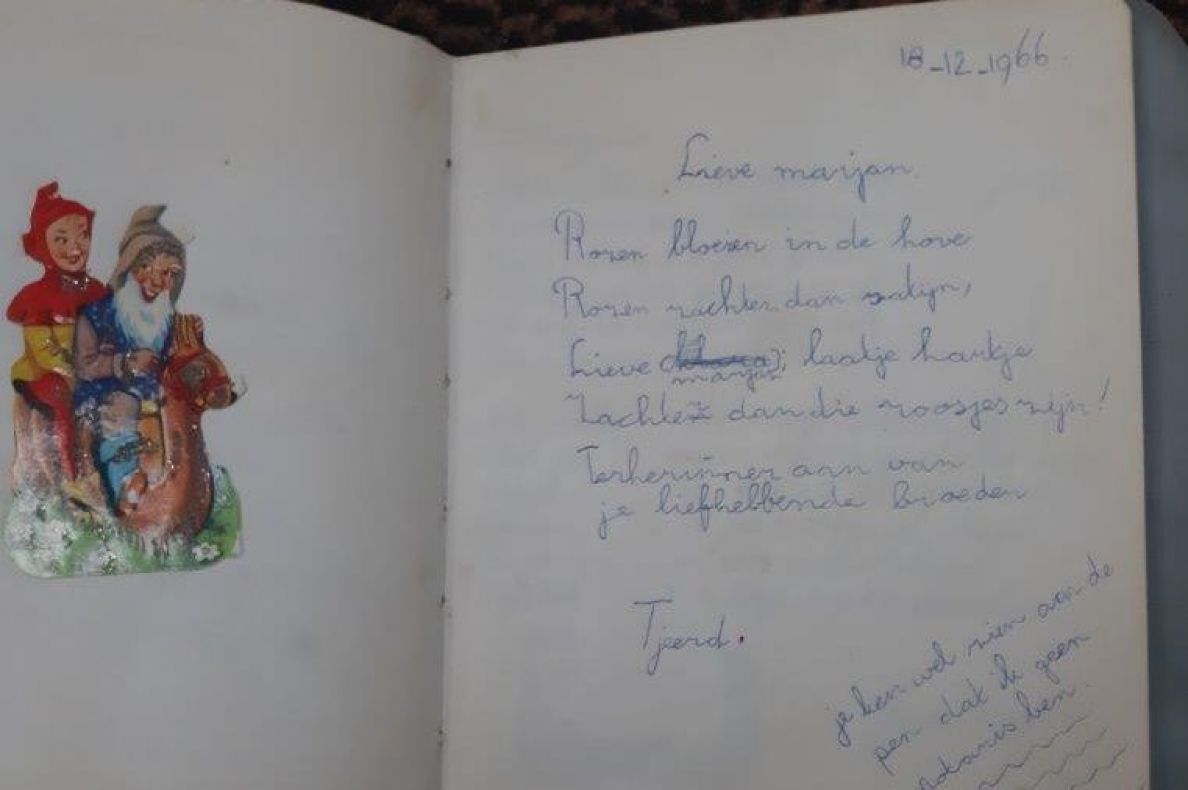 18-12-1966.
Lieve marjan.
Rozen bloeien in de hove
Rozen zachter dan satijn,
Lieve marjan; laatje hartje
Zachter dan die roosjes zijn!
Terherinner aan van
je liefhebbende broeder
Tjeerd.
je ken wel zien aan de
pen dat ik geen
ben.